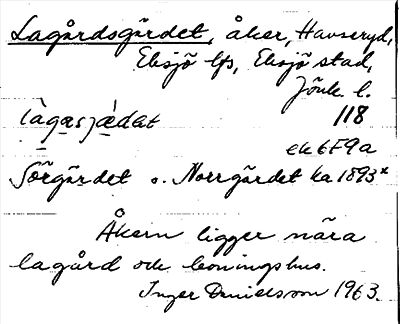 Lagårdsgärdet, åker, Havseryd,
Eksjö lfs, Eksjö stad,
Jönk. l.
làgasjæ̀dat 118
ek 6F9a
Sörgärdet o. Norrgärdet ka 1893x
Åkern ligger nära
lagård och boningshus.
Inger Danielsson 1963.